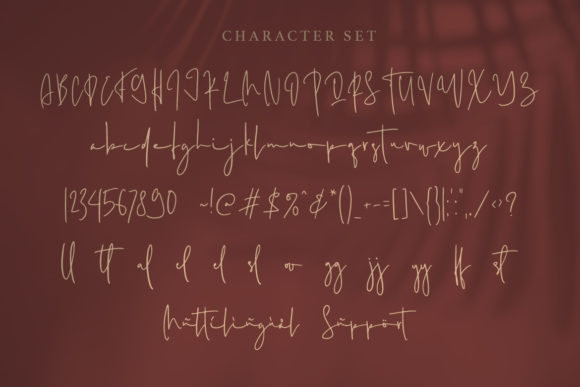 CHARACTER SET
ABCDEFGHIJKLMNOPQRSTUVWXYZ
abcdefghijklmnopqrstuvwxyz
1234567890 ~!@#$%^&*()_+-=[]\{}|:;'",./<>?
ll tt al el d sl ov gg jj yy ff st
Mũttílíñgíål Sũppört